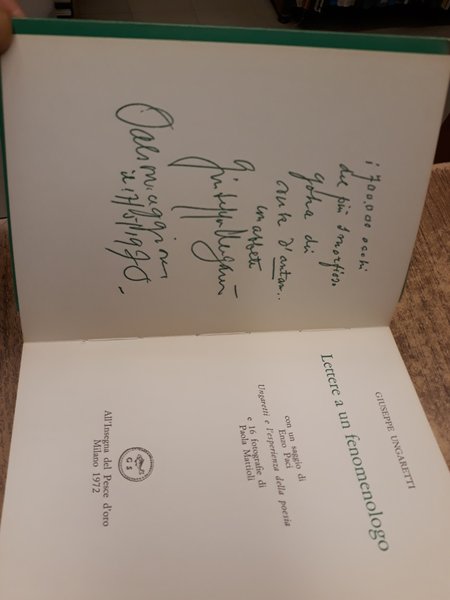 i 700.000 occhi
del più smorfioso
Giuseppe Ungaretti
il 17/5/1970
GIUSEPPE UNGARETTI
Lettere a un fenomenologo
con un saggio di
Enzo Paci
Ungaretti e l'esperienza della poesia
e 16 fotografie di
Paola Mattioli
G S
All'Insegna del Pesce d'oro
Milano 1972